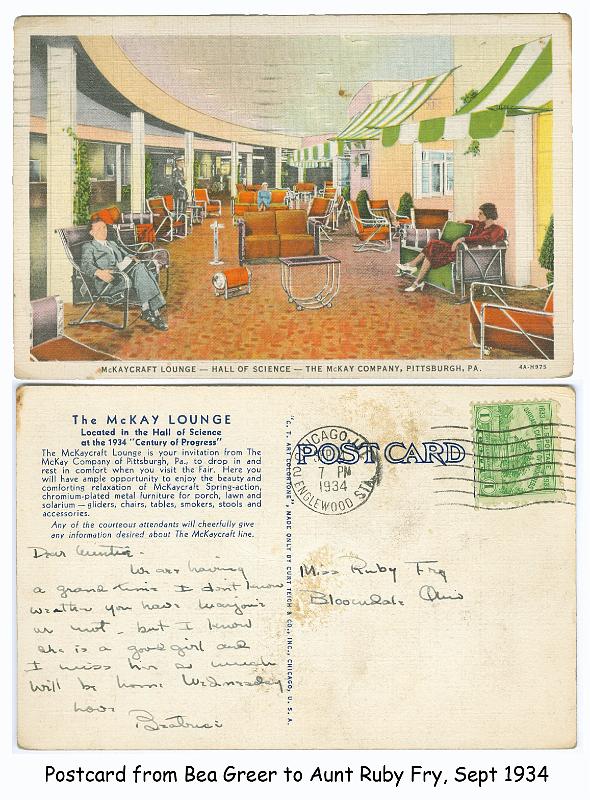 McKAYCRAFT LOUNGE — HALL OF SCIENCE — THE McKAY COMPANY, PITTSBURGH, PA.
4A-H975
The McKAY LOUNGE
Located in the Hall of Science
at the 1934 "Century of Progress"
The McKaycraft Lounge is your invitation from The
McKay Company of Pittsburgh, Pa., to drop in and
rest in comfort when you visit the Fair. Here you
will have ample opportunity to enjoy the beauty and
comforting relaxation of McKaycraft Spring-action,
chromium-plated metal furniture for porch, lawn and
solarium — gliders, chairs, tables, smokers, stools and
accessories.
Any of the courteous attendants will cheerfully give
any information desired about The McKaycraft line.
Dear Auntie-
We are having
a grand time I dont know
weather you have Marjorie
or not - but I know
she is a good girl and
I miss her so much
Will be home Wednesday
love
Beatrice
"C. T. ART COLORTONE", MADE ONLY BY CURT TEICH & CO., INC., CHICAGO, U. S. A.
POST CARD
CHICAGO, ILL.
PM
1934
ENGLEWOOD STA.
1
Miss Ruby Fry
Bloomdale Ohio
Postcard from Bea Greer to Aunt Ruby Fry, Sept 1934